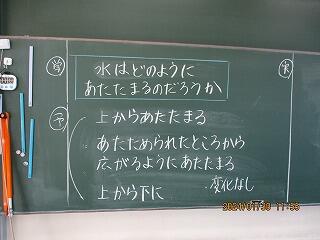 学
水はどのように
あたたまるのだろうか
予
上からあたたまる
あたためられたところから
広がるようにあたたまる
上から下に
変化なし
実